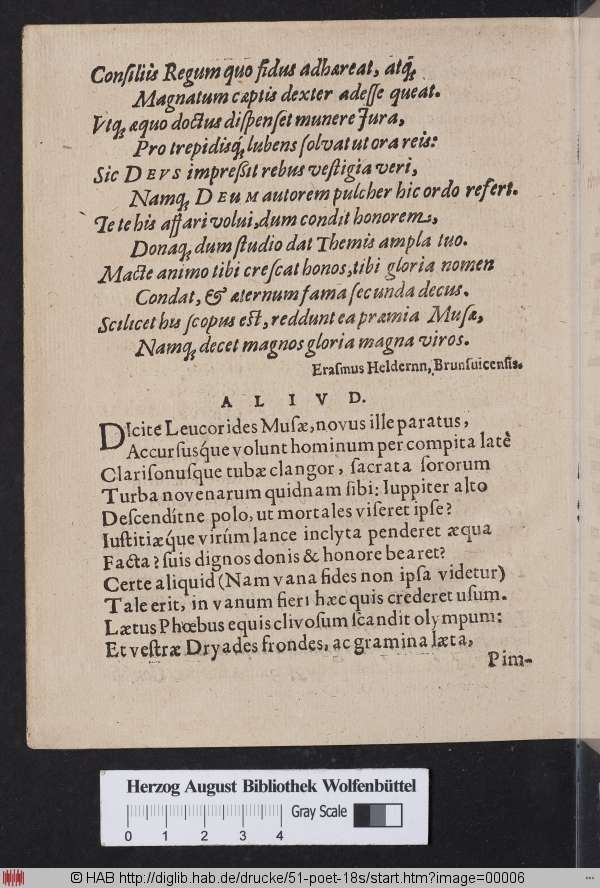 Conſiliis Regum quo fidus adhæreat, atq́;
Magnatum cæptis dexter adeſſe queat.
Vtq; æquo doctus diſpenſet munere Jura,
Pro trepidisq́; lubens ſolvat ut ora reis:
Sic DEVS impreſsit rebus veſtigia veri,
Namq; DEuM autorem pulcher hic ordo refert.
Te te his affari volui, dum condit honorem,
Donaq; dum ſtudio dat Themis ampla tuo.
Macte animo tibi creſcat honos, tibi gloria nomen
Condat, & æternum fama ſecunda decus.
Scilicet his ſcopus eſt, reddunt ea præmia Muſæ,
Namq; decet magnos gloria magna viros.
Eraſmus Heldernn, Brunſuicenſis.
ALIVD.
DIcite Leucorides Muſæ, novus ille paratus,
Accurſusq́ue volunt hominum per compita latè
Clariſonuſque tubæ clangor, ſacrata ſororum
Turba novenarum quidnam ſibi: Iuppiter alto
Deſcendítne polo, ut mortales viſeret ipſe?
Iuſtitiæq́ue virúm lance inclyta penderet æqua
Facta? ſuis dignos donis & honore bearet?
Certe aliquid (Nam vana fides non ipſa videtur)
Tale erit, in vanum fieri hæc quis crederet uſum.
Lætus Phœbus equis clivoſum ſcandit olympum:
Et veſtræ Dryades frondes, ac gramina læta,
Pim-
Herzog August Bibliothek Wolfenbüttel
Gray Scale
0 1 2 3 4
© HAB http://diglib.hab.de/drucke/51-poet-18s/start.htm?image=00006